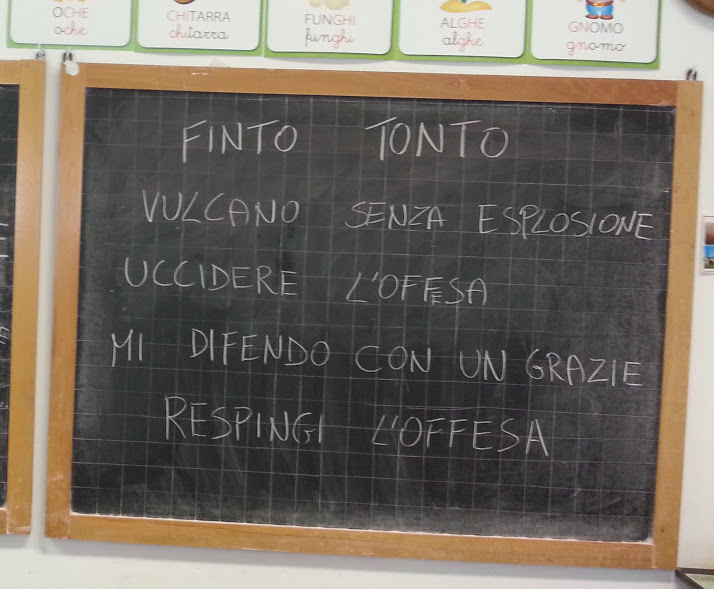 OCHE
oche
CHITARRA
chitarra
FUNGHI
funghi
ALGHE
alghe
GNOMO
gnomo
FINTO TONTO
VULCANO SENZA ESPLOSIONE
UCCIDERE L'OFFESA
MI DIFENDO CON UN GRAZIE
RESPINGI L'OFFESA